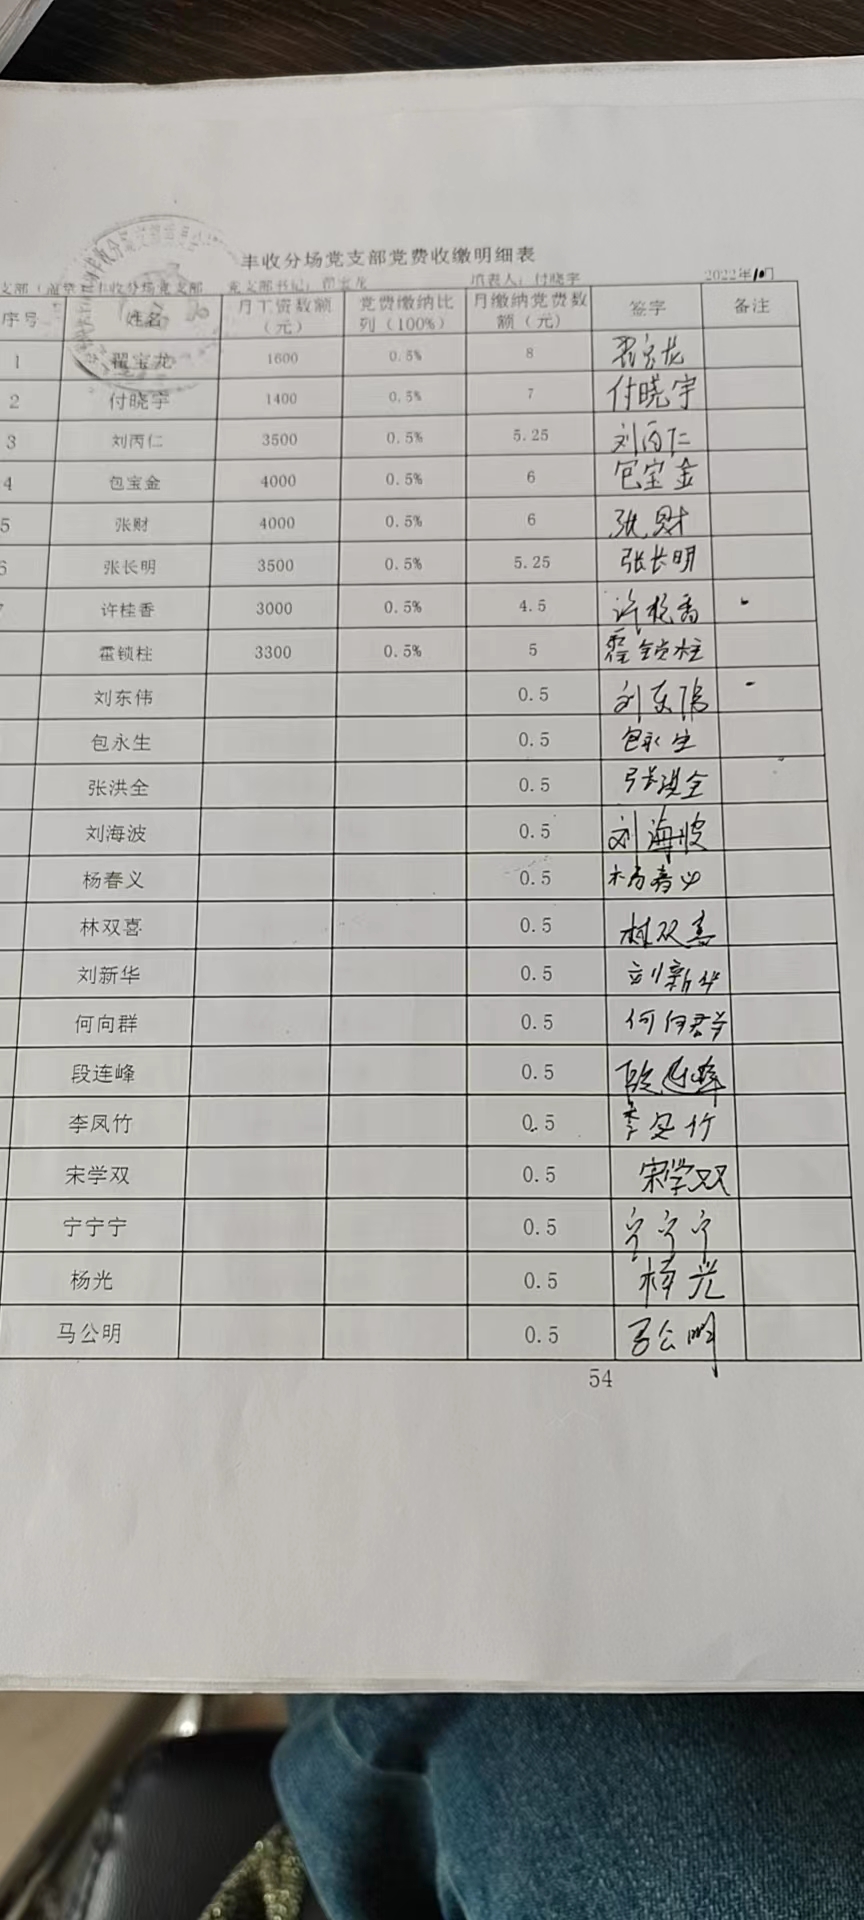 丰收分场党支部党费收缴明细表
丰收分场党支部 党支部书记：翟宝龙 填表人：付晓宇 2022年10月
序号 姓名 月工资数额（元） 党费缴纳比列（100%） 月缴纳党费数额（元） 签字 备注
1 翟宝龙 1600 0.5% 8 翟宝龙
2 付晓宇 1400 0.5% 7 付晓宇
3 刘丙仁 3500 0.5% 5.25 刘丙仁
4 包宝金 4000 0.5% 6 包宝金
5 张财 4000 0.5% 6 张财
6 张长明 3500 0.5% 5.25 张长明
7 许桂香 3000 0.5% 4.5 许桂香
霍锁柱 3300 0.5% 5 霍锁柱
刘东伟 0.5 刘东伟
包永生 0.5 包永生
张洪全 0.5 张洪全
刘海波 0.5 刘海波
杨春义 0.5 杨春义
林双喜 0.5 林双喜
刘新华 0.5 刘新华
何向群 0.5 何向群
段连峰 0.5 段连峰
李凤竹 0.5 李凤竹
宋学双 0.5 宋学双
宁宁宁 0.5 宁宁宁
杨光 0.5 杨光
马公明 0.5 马公明
54